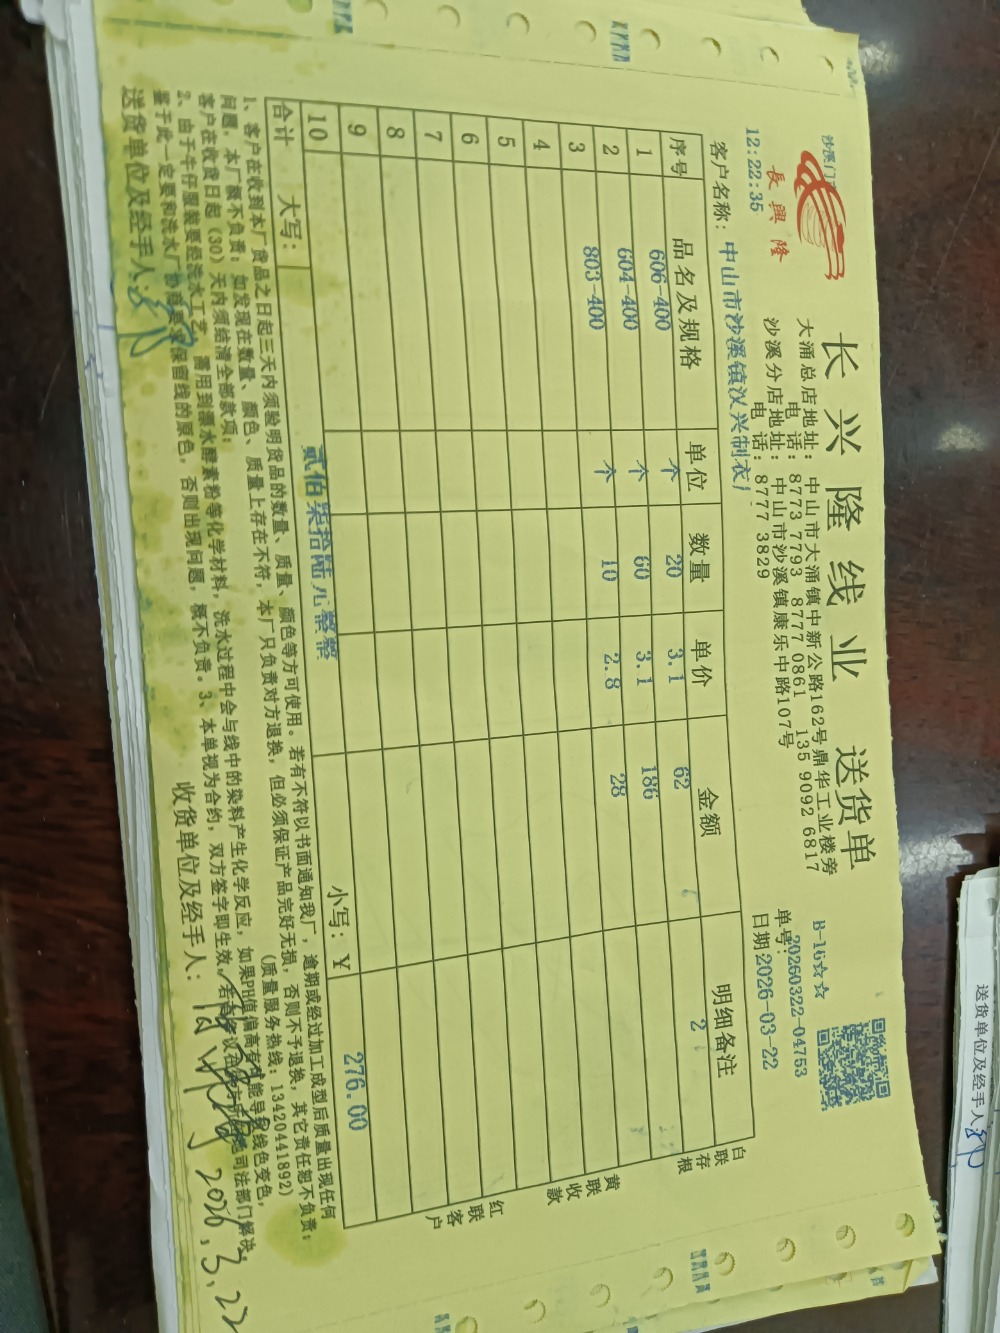 長興隆
长兴隆线业 送货单
大涌总店地址: 中山市大涌镇中新公路162号鼎华工业楼旁
电话: 8773 7793 8777 0861 135 9092 6817
沙溪分店地址: 中山市沙溪镇康乐中路107号
电话: 8777 3829
沙溪门
12:22:35
B-16☆☆
单号: 20260322-04753
客户名称: 中山市沙溪镇汉兴制衣厂
日期: 2026-03-22
序号 品名及规格 单位 数量 单价 金额 明细备注
1 606-400 个 20 3.1 62 2
2 604-400 个 60 3.1 186
3 803-400 个 10 2.8 28
4
5
6
7
8
9
10
合计 大写: 贰佰柒拾陆元整整 小写: ¥ 276.00
白联存根
黄联收款
红联客户
1、客户在收到本厂货品之日起三天内须验明货品的数量、质量、颜色等方可使用。若有不符以书面通知我厂,逾期或经过加工成型后质量出现任何
问题,本厂概不负责;如发现在数量、颜色、质量上存在不符,本厂只负责对方退换,但必须保证产品完好无损,否则不予退换,其它责任恕不负责;
客户在收货日起(30)天内须结清全部款项; (质量服务热线: 13420441892)
2、由于牛仔服装要经洗水工艺,需用到漂水酵素粉等化学材料,洗水过程中会与线中的染料产生化学反应,如果PH值偏高有可能导致线色变色,
鉴于此一定要和洗水厂协商要求保留线的原色,否则出现问题,概不负责。3、本单视为合约,双方签字即生效,若有争议在
司法部门解决。
送货单位及经手人:
收货单位及经手人: 2026.3.22
送货单位及经手人